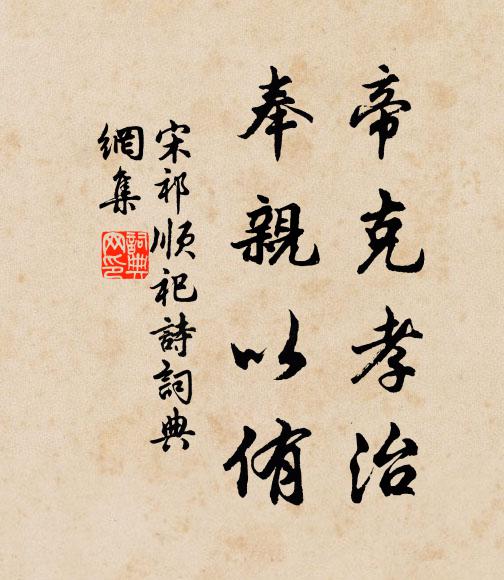 帝克孝治
奉親以侑
宋祁順祀詩詞典
網集
詞典
网印